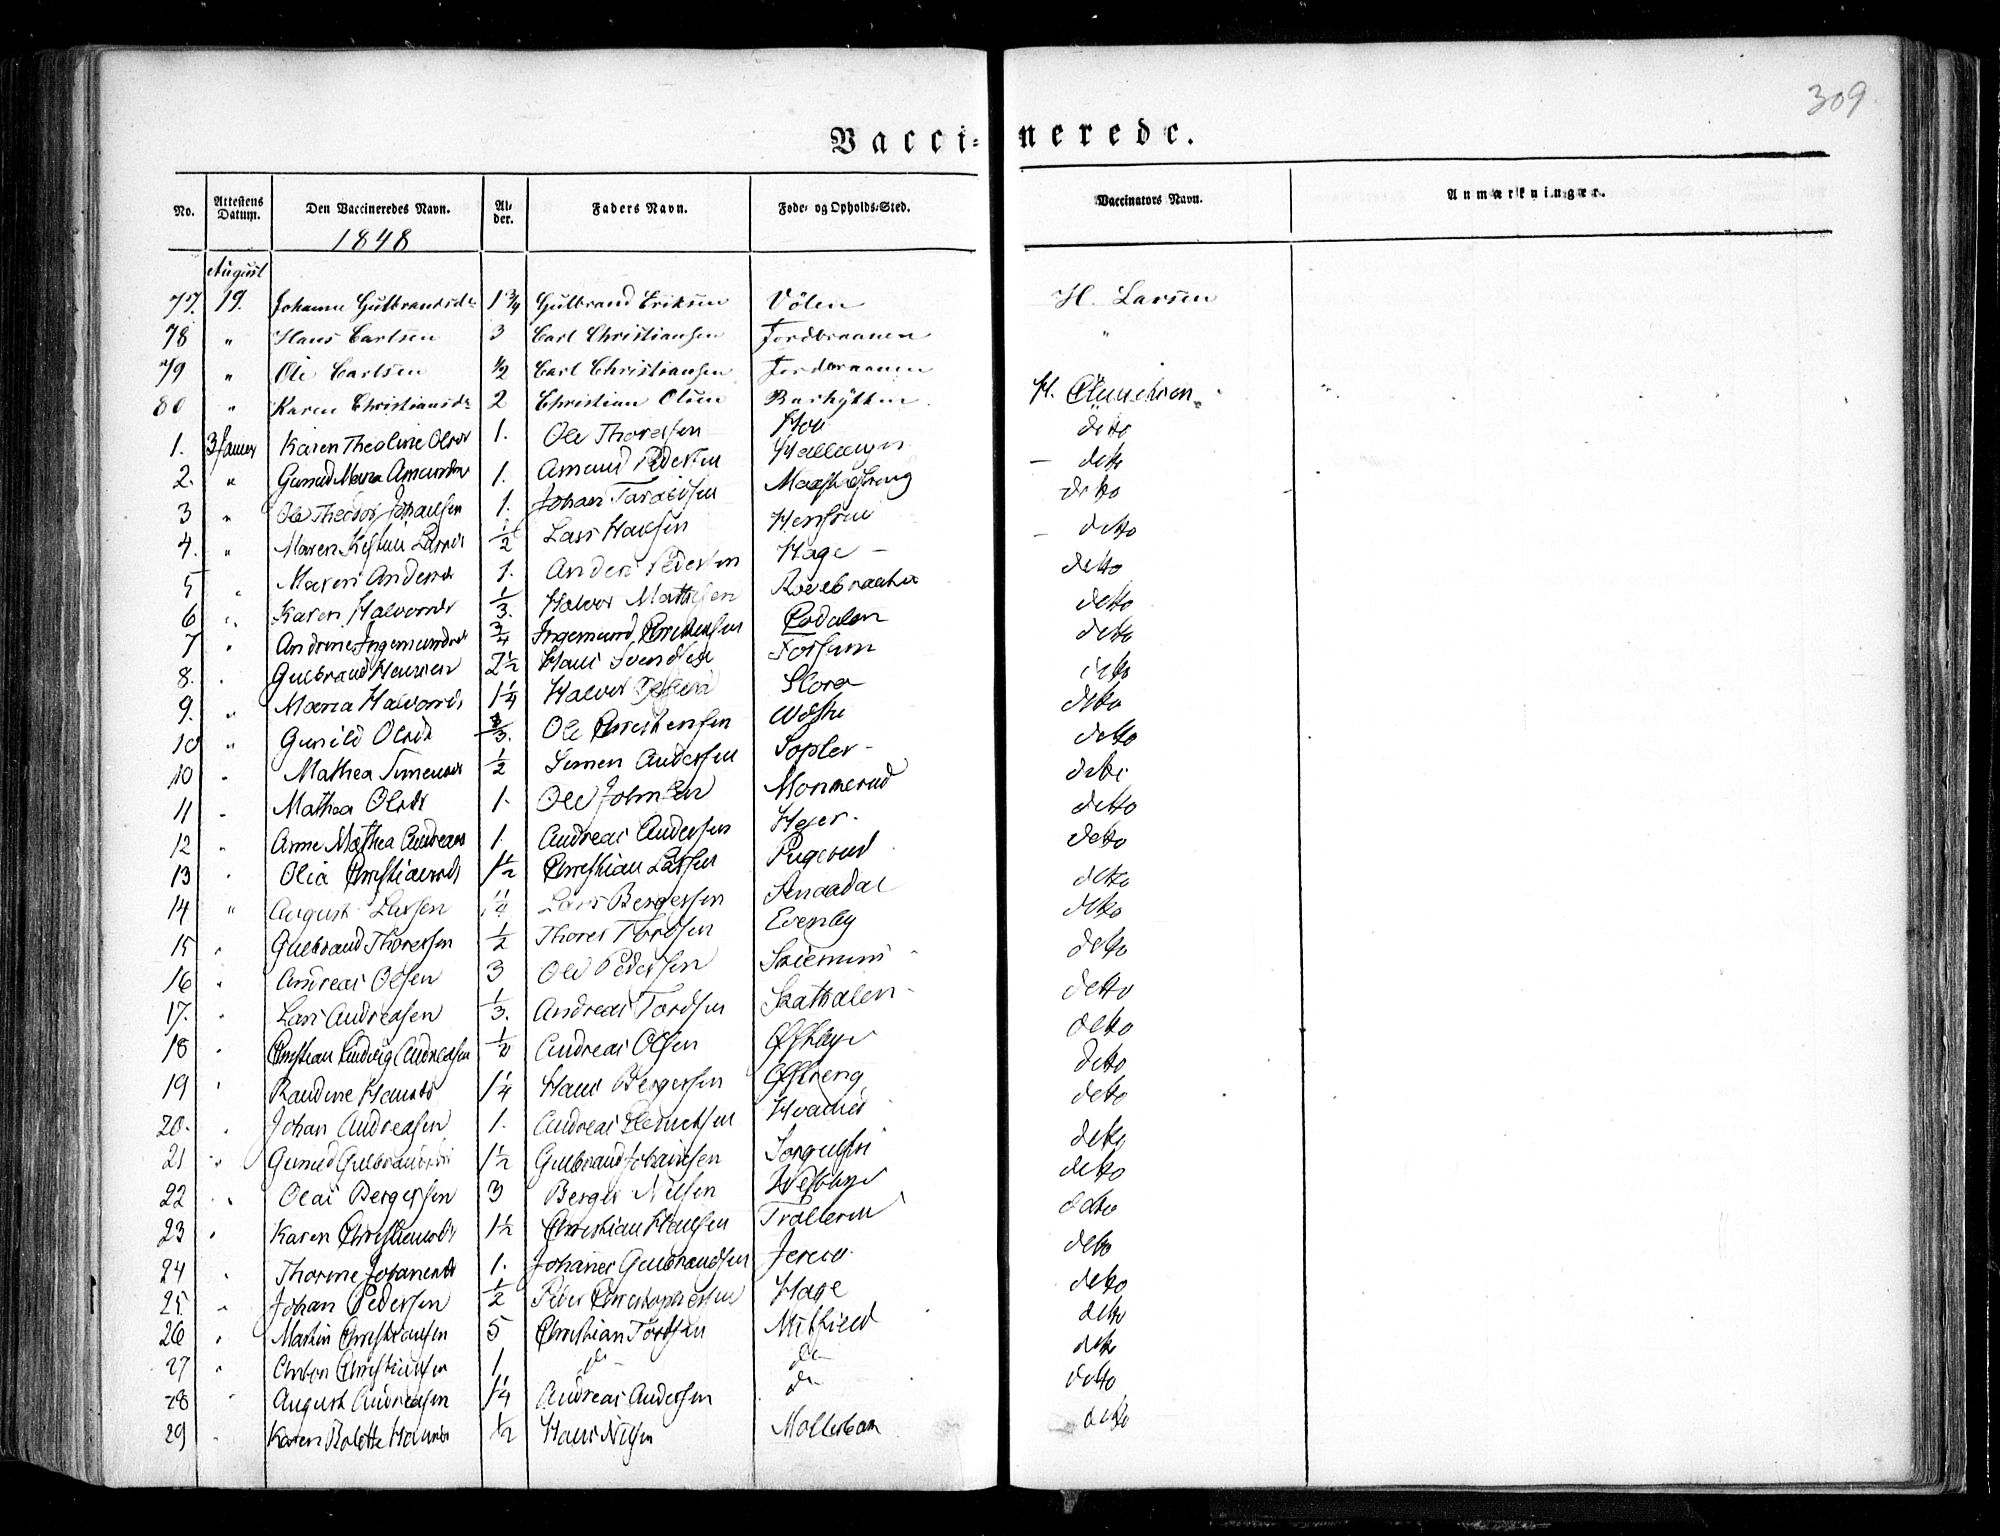 309
Vacci= nerede.
No. Attestens Datum. Den Vaccineredes Navn. Al- der. Faders Navn. Føde- og Opholds-Sted. Vaccinators Navn. Anmærkninger.
1848
August
77. 19. Johanne Gulbrandsdr 1 3/4 Gulbrand Eriksen Vølen H. Larsen
78 " Hans Carlsen 3 Carl Christiansen Jordbraanen "
79 " Ole Carlsen 1/2 Carl Christiansen Jordbraanen
80 " Karen Christiansdr 2 Christian Olsen H.
1. 3 Karen Theoline Olsdr 1. Ole Thordsen Hov detto
2. " Gunild Maria Amundsdr 1. Amund Pedersen — detto
3 " Ole Theodor Johansen 1. Johan detto
4. " Maren Larsdr 1/2 Lars Hansen — detto
5 " Maren Andersdr 1. Anders Pedersen Hage — detto
6 " Karen Halvorsdr 1/3. Halvor Mathisen detto
7 " Andrine Ingemundsdr 3/4 Ingemund Christensen detto
8. " Gulbrand Hansen 2 1/2 Hans Svendsen Fossum detto
9. " Maria Halvorsdr 1 1/4 Halvor Slora detto
10 " Gunild Olsdr 2/3. Ole Christensen detto
10 " Mathea Simensdr 1/2 Simen Andersen Sopler — detto
11 " Mathea Olsdr 1. Ole Johnsen Monnerud detto
12 " Anne Mathea Andreasd 1. Andreas Andersen Hejer. detto
13 " Olia Christiansdr 1 1/2 Christian Larsen Pugerud detto
14 " August Larsen 1 1/4 Lars Bergersen Smaadal detto
15 " Gulbrand Thoresen 1/2 Thores Tordsen Evenby detto
16 " Andreas Olsen 3 Ole Pedersen detto
17. " Lars Andreasen 1/3. Andreas Tordsen detto
18 " Christian Ludvig Andreasen 1/2 Andreas Olsen Østbye detto
19 " Randine Hansdr 1 1/4 Hans Bergersen Østreng detto
20. " Johan Andreasen 1. Andreas detto
21 " Gunild Gulbrandsdr 1 1/2 Gulbrand Johannesen detto
22 " Olai Bergersen 3 Berger Nilsen Vestbye detto
23 " Karen Christiansdr 1 1/2 Christian Hansen Trollerud detto
24 " Thorine Johannesdr 1. Johannes Gulbrandsen detto
25. " Johan Pedersen 1/2 Peder Christophersen Hage detto
26 " Martin Christiansen 5 Christian Tordsen detto
27 " Christiansen 1 do do detto
28 " August Andreasen 1 1/4 Andreas Andersen do detto
29 " Karen Bolette Hansdr 1/2 Hans Nilsen detto